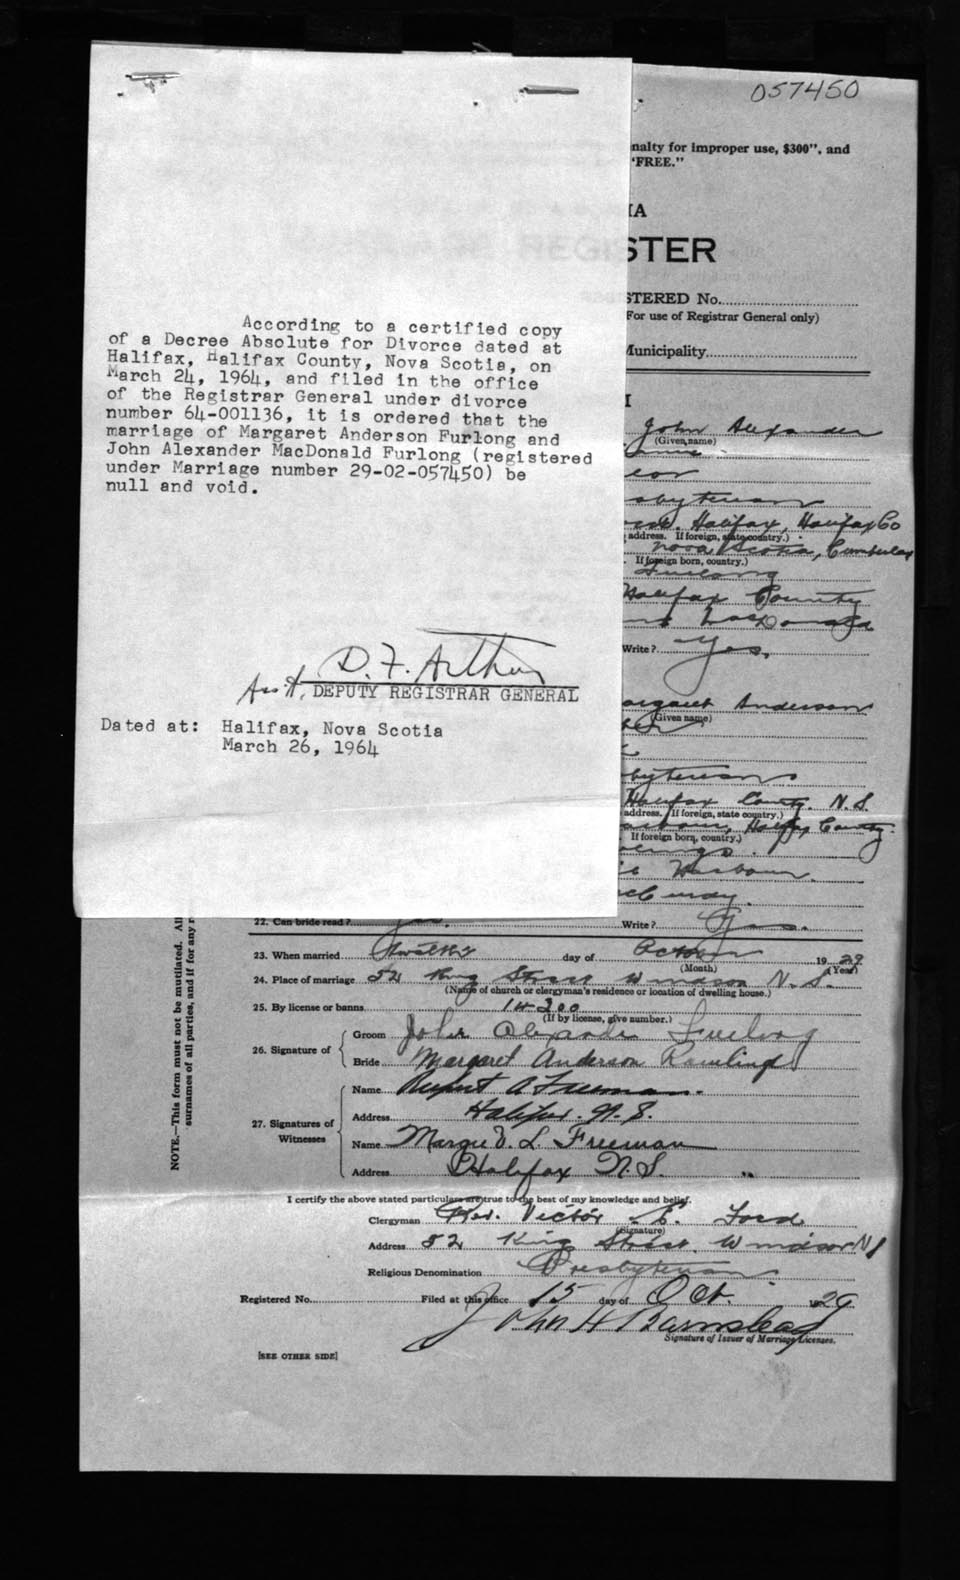 057450
nalty for improper use, $300", and
"FREE."
IA
STER
STERED No.
(For use of Registrar General only)
Municipality
According to a certified copy
of a Decree Absolute for Divorce dated at
Halifax, Halifax County, Nova Scotia, on
March 24, 1964, and filed in the office
of the Registrar General under divorce
number 64-001136, it is ordered that the
marriage of Margaret Anderson Furlong and
John Alexander MacDonald Furlong (registered
under Marriage number 29-02-057450) be
null and void.
D. F. Arthur
Ass't, DEPUTY REGISTRAR GENERAL
Dated at: Halifax, Nova Scotia
March 26, 1964
I
John Alexander
(Given name)
lor
sbyterian
Halifax, Halifax Co
address. If foreign, state country.)
Nova Scotia, Cumberland
If foreign born, country.)
Furlong
Halifax County
MacDonald
Write? Yes,
argaret Anderson
(Given name)
byterian
Halifax County. N.S.
address. If foreign, state country.)
Harbour, Halifax County.
If foreign born, country.)
Harbour.
22. Can bride read? Yes. Write? Yes.
23. When married Twelfth day of October 1929
(Month) (Year)
24. Place of marriage 52 King Street Windsor N.S.
(Name of church or clergyman's residence or location of dwelling house.)
25. By license or banns 14200
(If by license, give number.)
26. Signature of Groom John Alexander Furlong
Bride Margaret Anderson Rawlings
27. Signatures of Witnesses Name Rupert A Freeman.
Address Halifax. N.S.
Name L. Freeman
Address Halifax N.S. "
I certify the above stated particulars are true to the best of my knowledge and belief.
Clergyman Rev. Victor E. Ford
(Signature)
Address 52 King Street. Windsor N S
Religious Denomination Presbyterian
Registered No. Filed at this office 15 day of Oct. 1929
John H Barnstead
Signature of Issuer of Marriage Licenses.
[SEE OTHER SIDE]
NOTE.—This form must not be mutilated. All
surnames of all parties, and if for any r